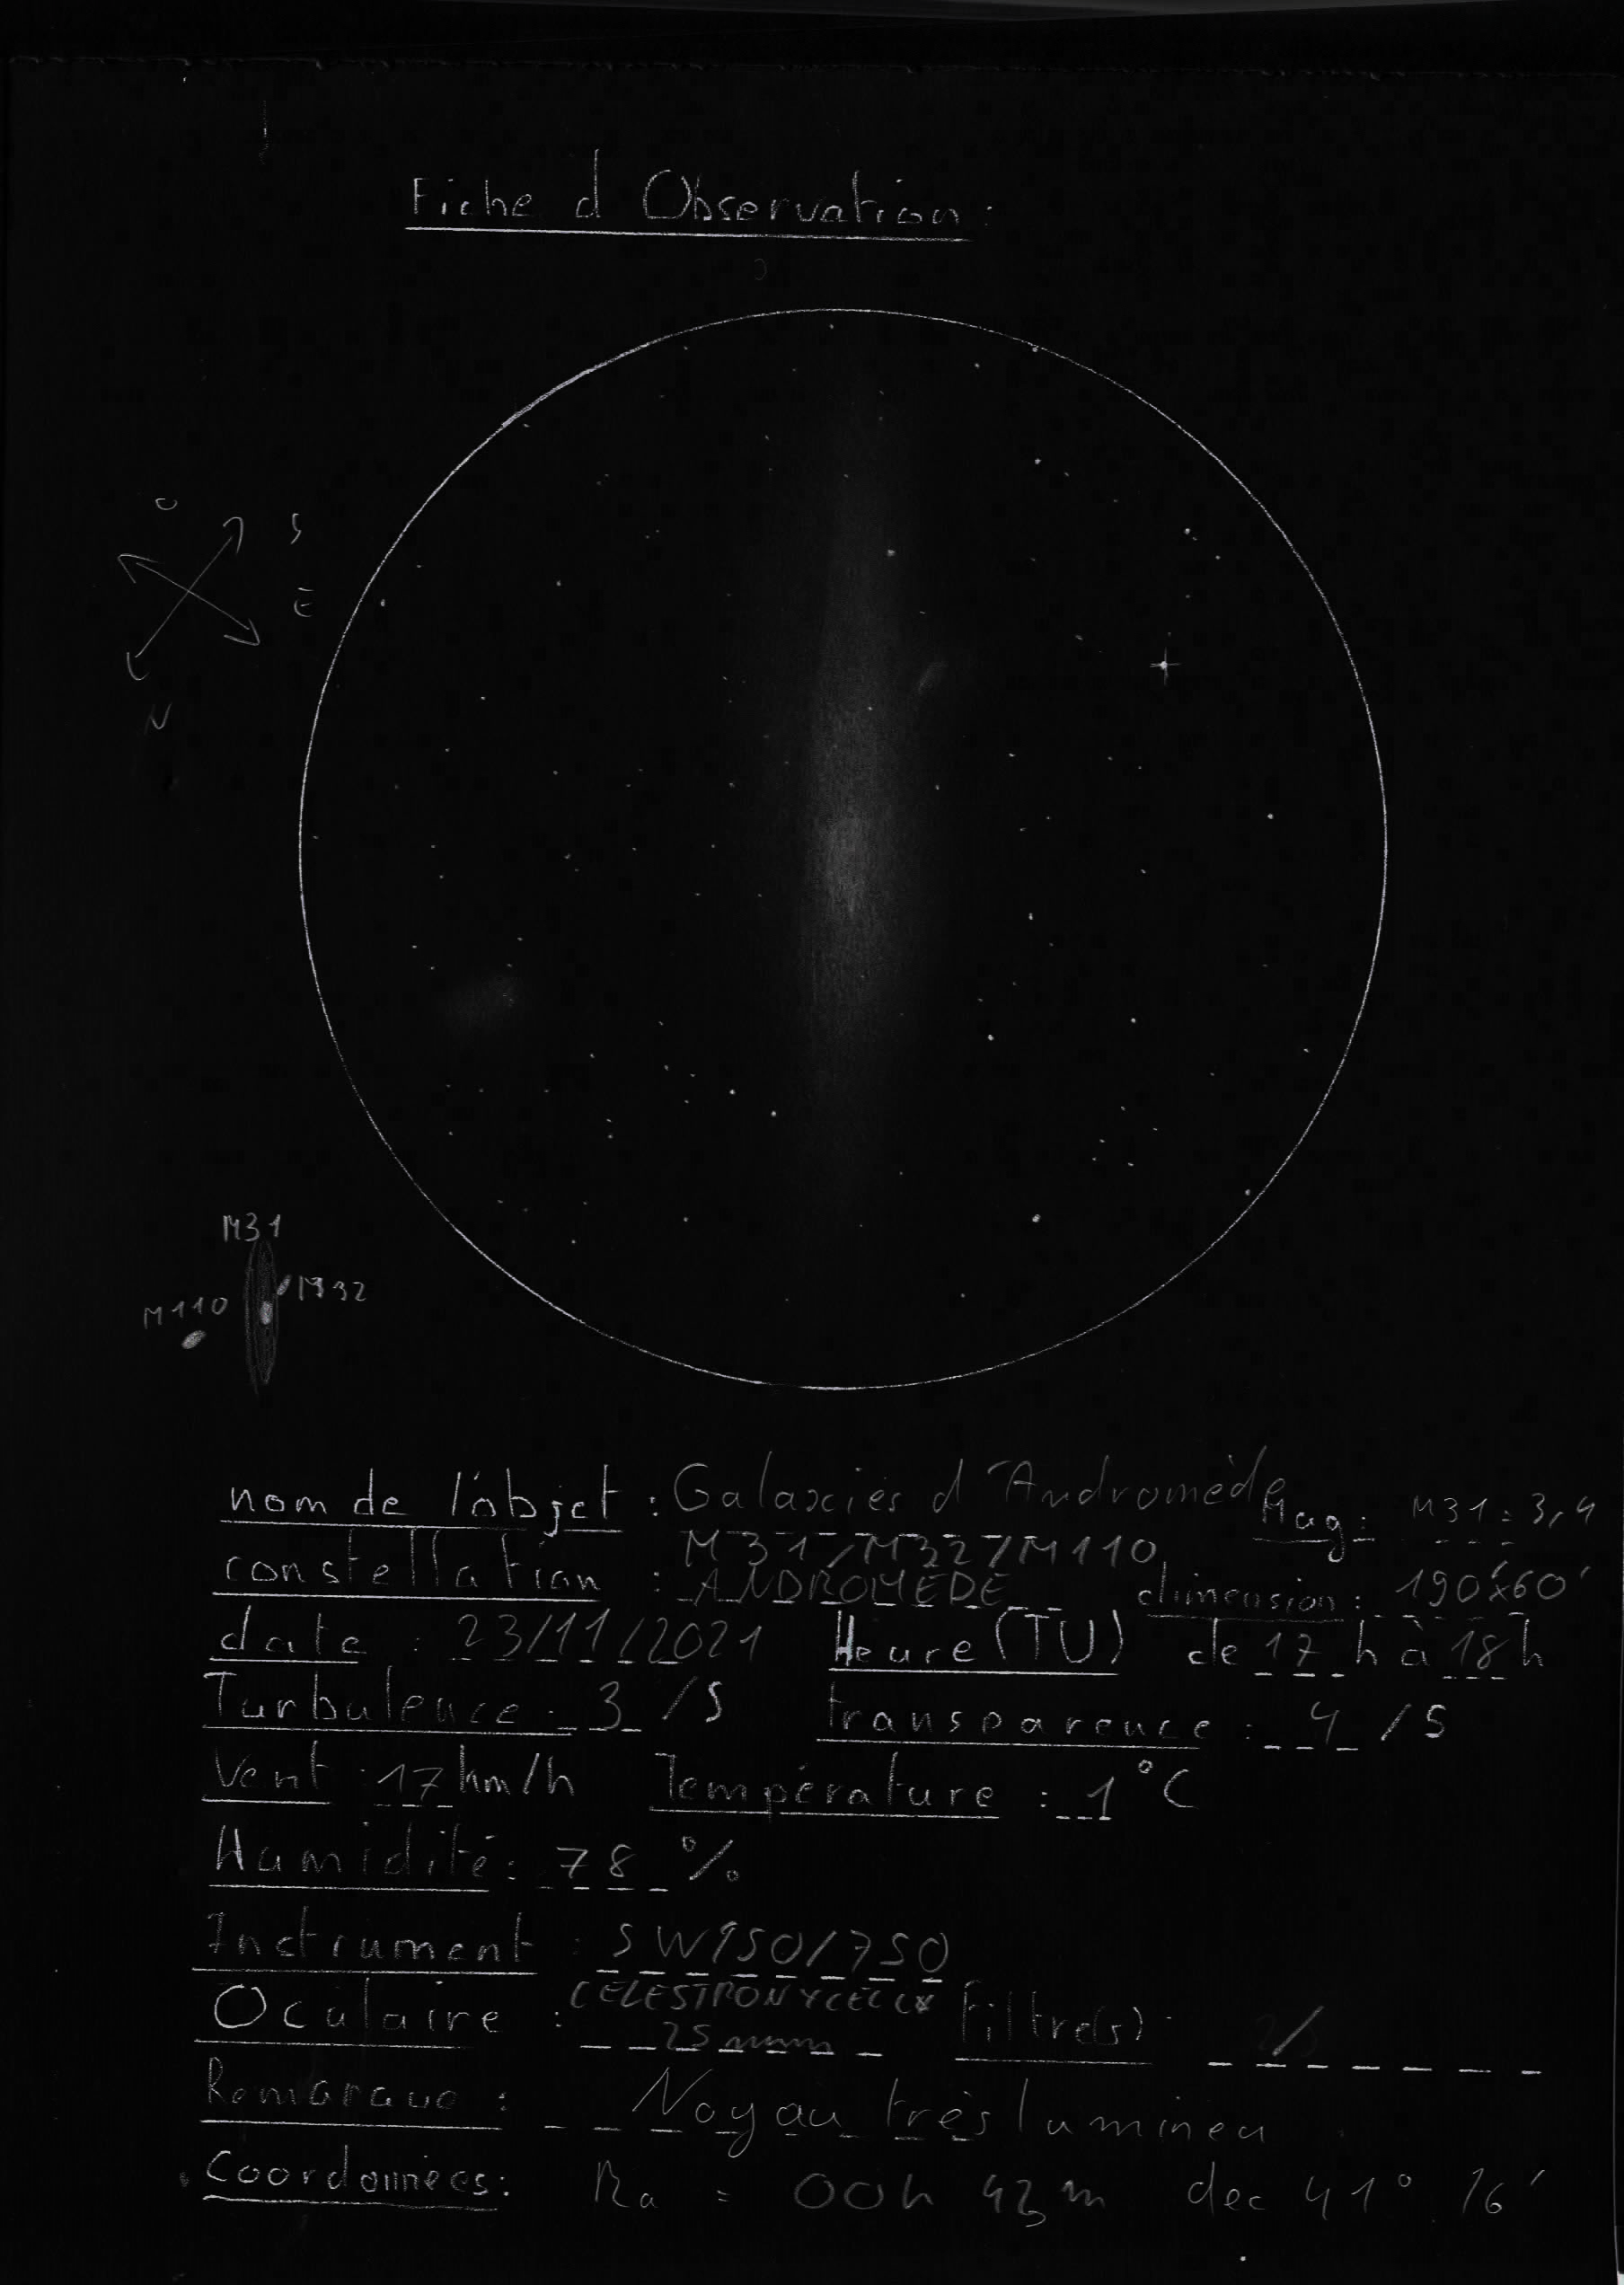 Fiche d Observation :
O
S
E
N
M31
M32
M110
nom de l'objet : Galaxies d'Andromède Mag : M31 : 3,4
M31/M32/M110
constellation : ANDROMEDE dimension : 190'x60'
date : 23/11/2021 Heure (TU) de 17 h à 18 h
Turbulence : 3 /5 transparence : 4 /5
Vent : 17 km/h Température : 1 °C
Humidité : 78 %
Instrument : SW150/750
Oculaire : CELESTRON XCEL LX Filtre(s) : /
25 mm
Remarque : Noyau très lumineu
Coordonnées : Ra = 00h 43 m dec 41° 16'